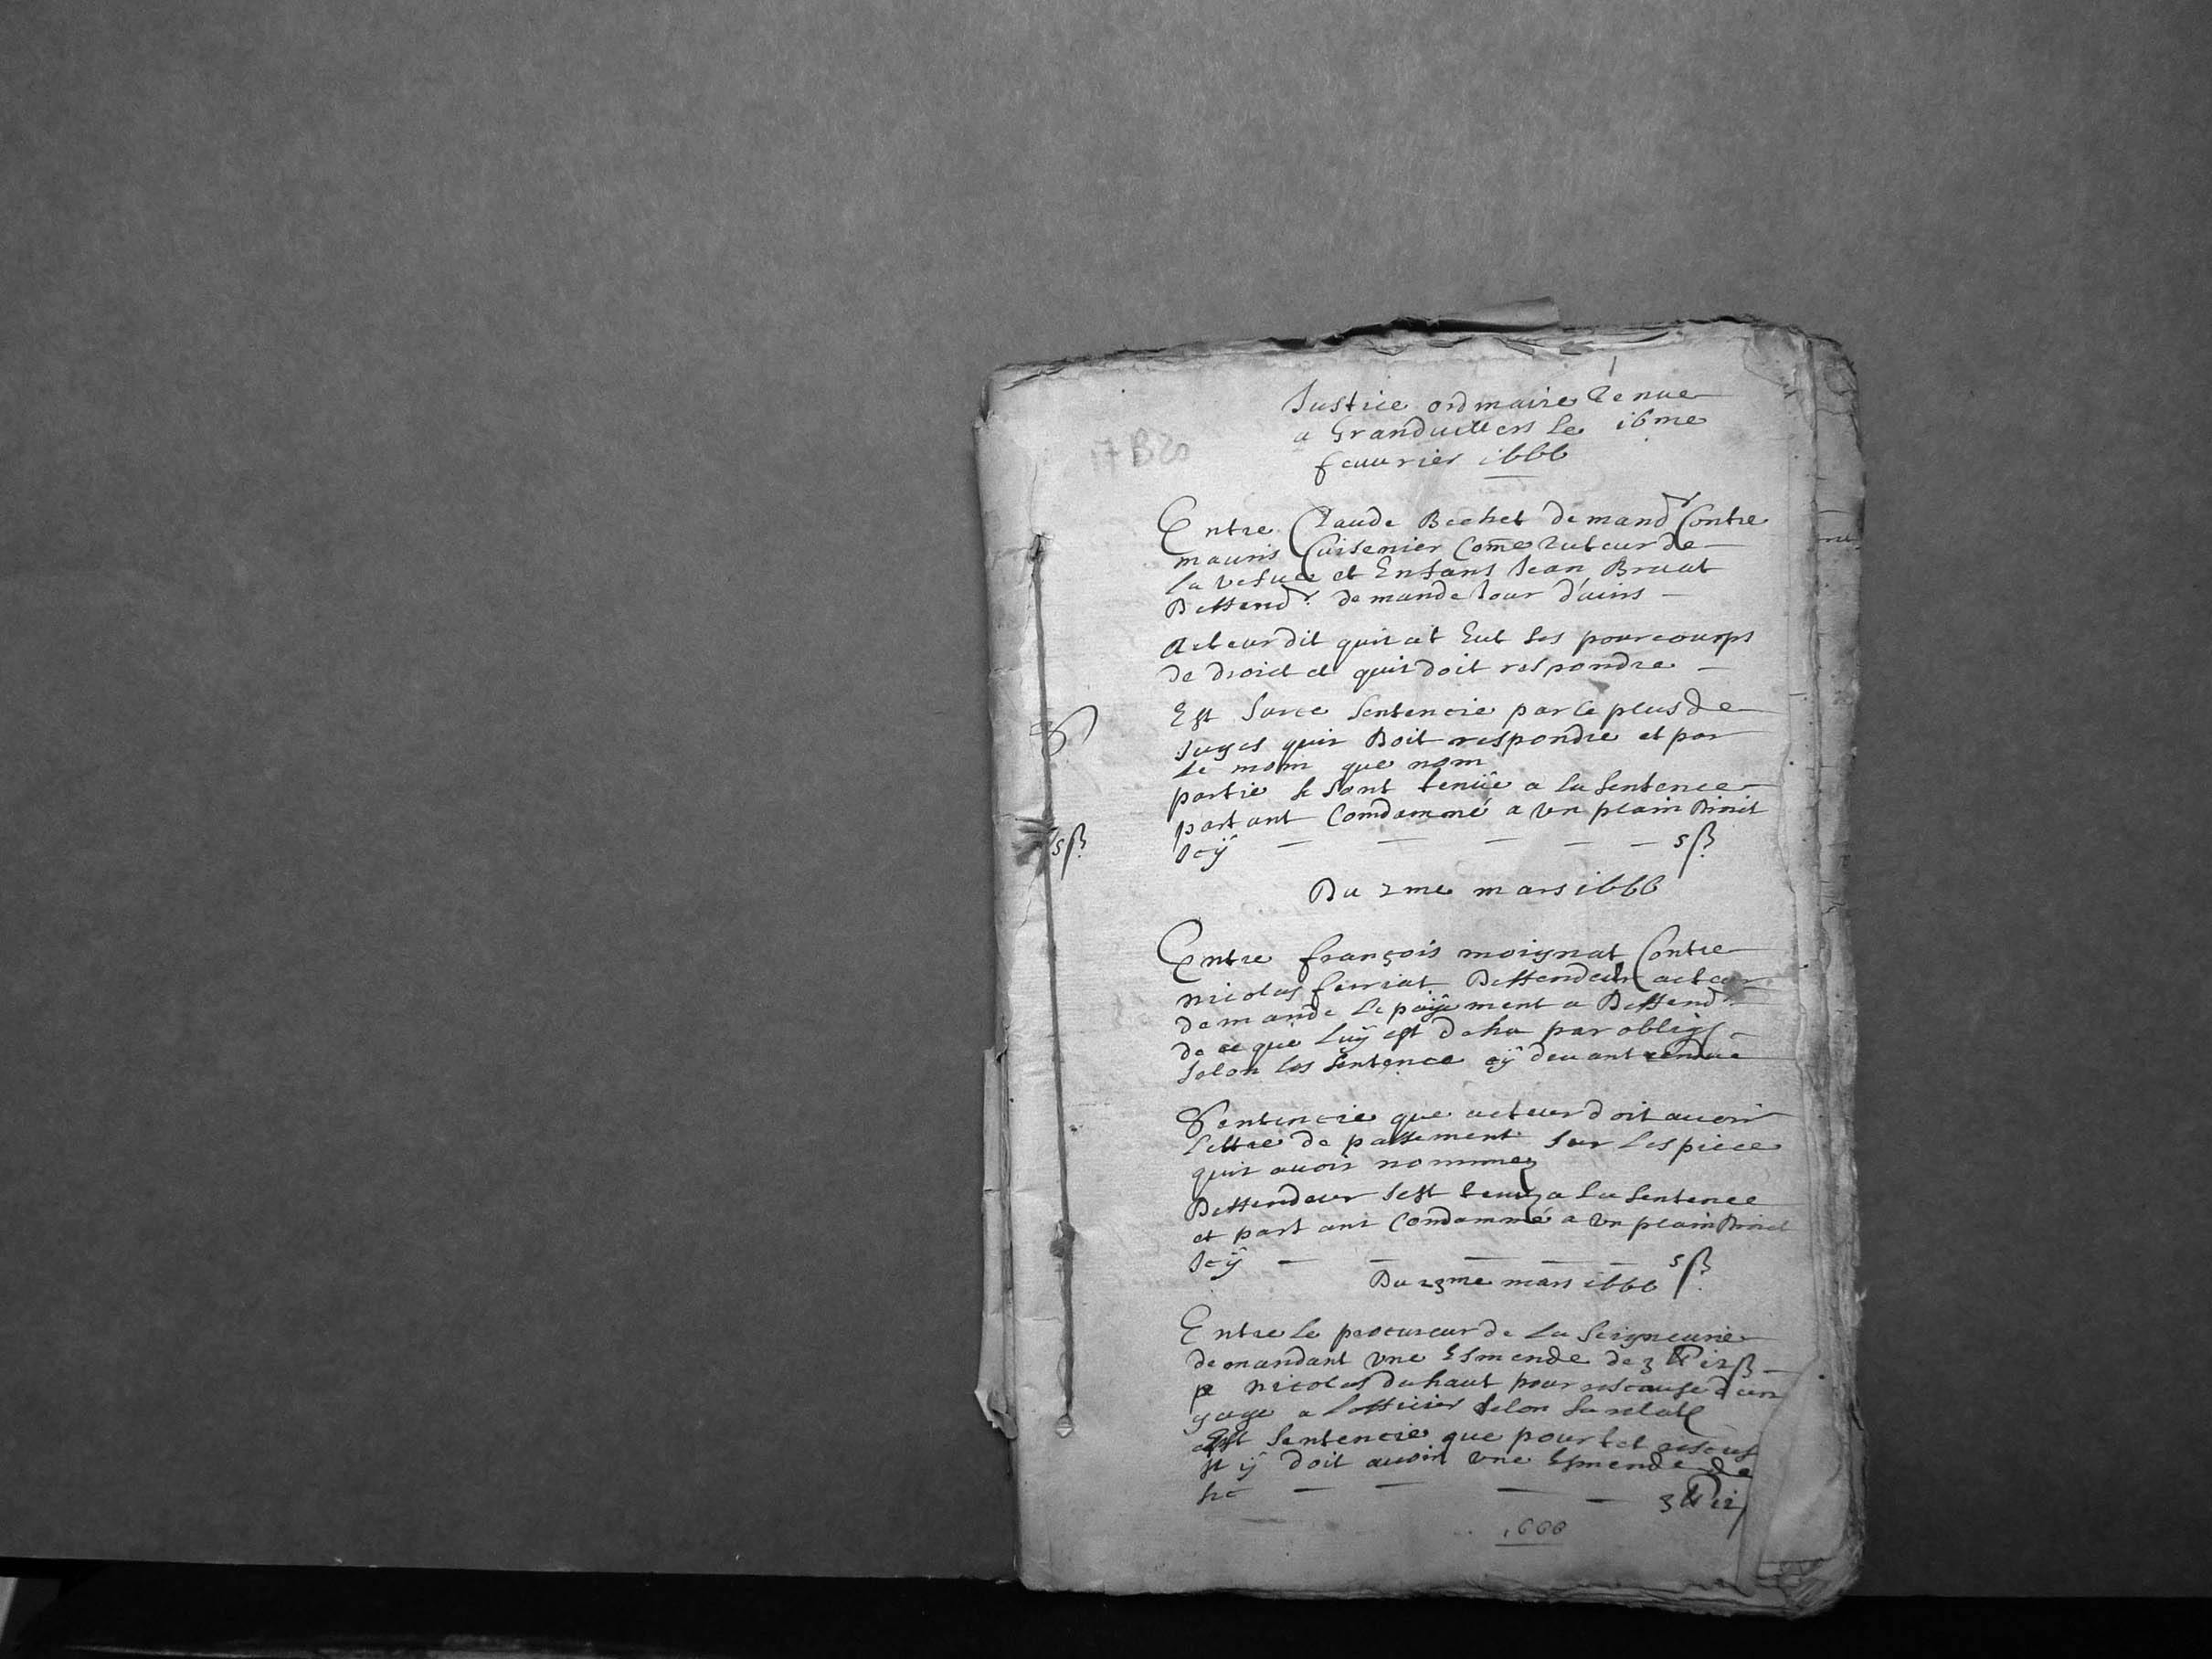 Justice ordinaire tenue
a Granduillers le 16me
feuurier 1666
17 B 20
Entre Claude Bechet demandr Contre
mauris Cuisenier Come tuteur de
la vefue et Enfans Jean Bruat
Deffendr. demande Jour d'auis
Acteur dit quil at Eut ses pourcoups
de droict et quil doit respondre
Est surce sentencie par le plus de
Juges quil Doit respondre et par
le moin que nom
partie se sont tenüe a la sentence
partant Comdamné a vn plain
Icÿ — — — — — 5 ß
5 ß
Du 2me mars 1666
Entre françois moignat Contre
nicolas ferriat Deffendeur acteur
demande le paÿement a Deffendr
de ce que luÿ est dehu par oblig
selon les sentence cÿ deuant rendue
Sentencie que acteur doit auoir
lettre de passement sur les piece
quil auoit nommez
Deffendeur sest tenuz a la sentence
et partant Condammé a vn plain
Icÿ — — — — — 5 ß
Du 23me mars 1666
Entre le procureur de la Seigneurie
demandant vne Esmende de 3 12 ß
nicolas duhaut pour rescousse d'un
gage a lofficier selon sa relat
Est sentencie que pour tel
il ÿ doit auoir vne Esmende de
— — — — 3 12
1666